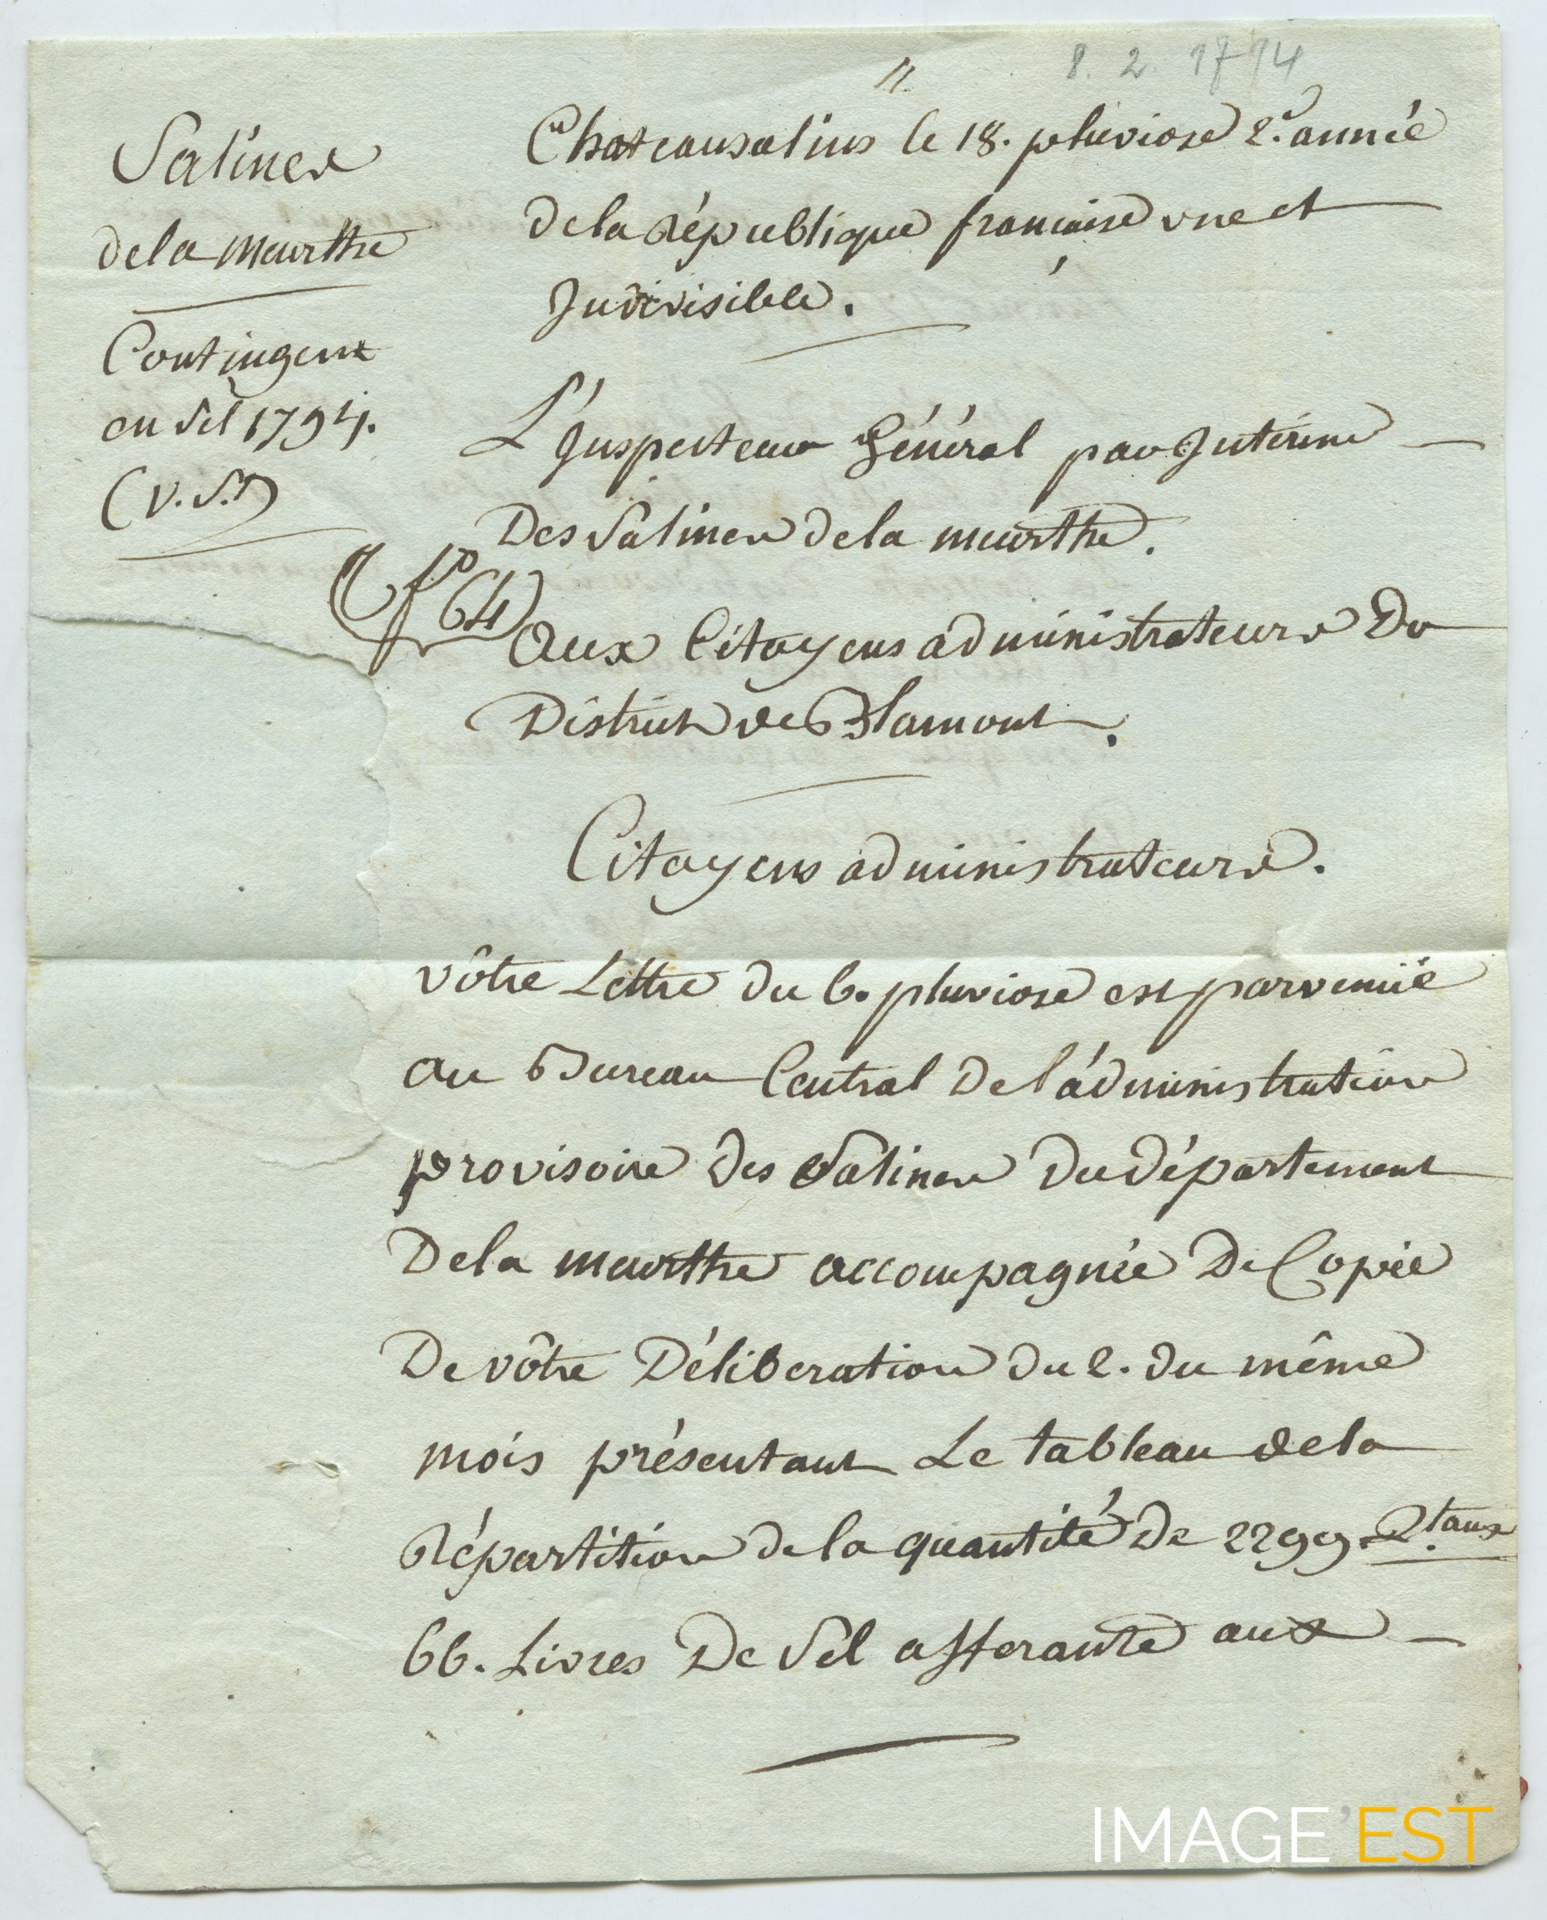 8. 2. 1794
11.
Salines
de la meurthe
Contingent
en sel 1794.
(v. st)
f° 64
Chateausalins le 18. pluviose 2e. année
de la république francaise une et
Indivisible.
L'Inspecteur Général par Intérim
Des Salines de la meurthe.
Aux Citoyens administrateurs Du
District de Blamont.
Citoyens administrateurs.
vôtre Lettre du 6. pluviose est parvenüe
au Bureau Central De l'administration
provisoire des Salines Du département
De la meurthe accompagnée De Copie
De vôtre Délibération du 2. du même
mois présentant Le tableau de la
répartition de la quantité De 2299. Qtaux
66. Livres De Sel afferante aux
IMAGE EST